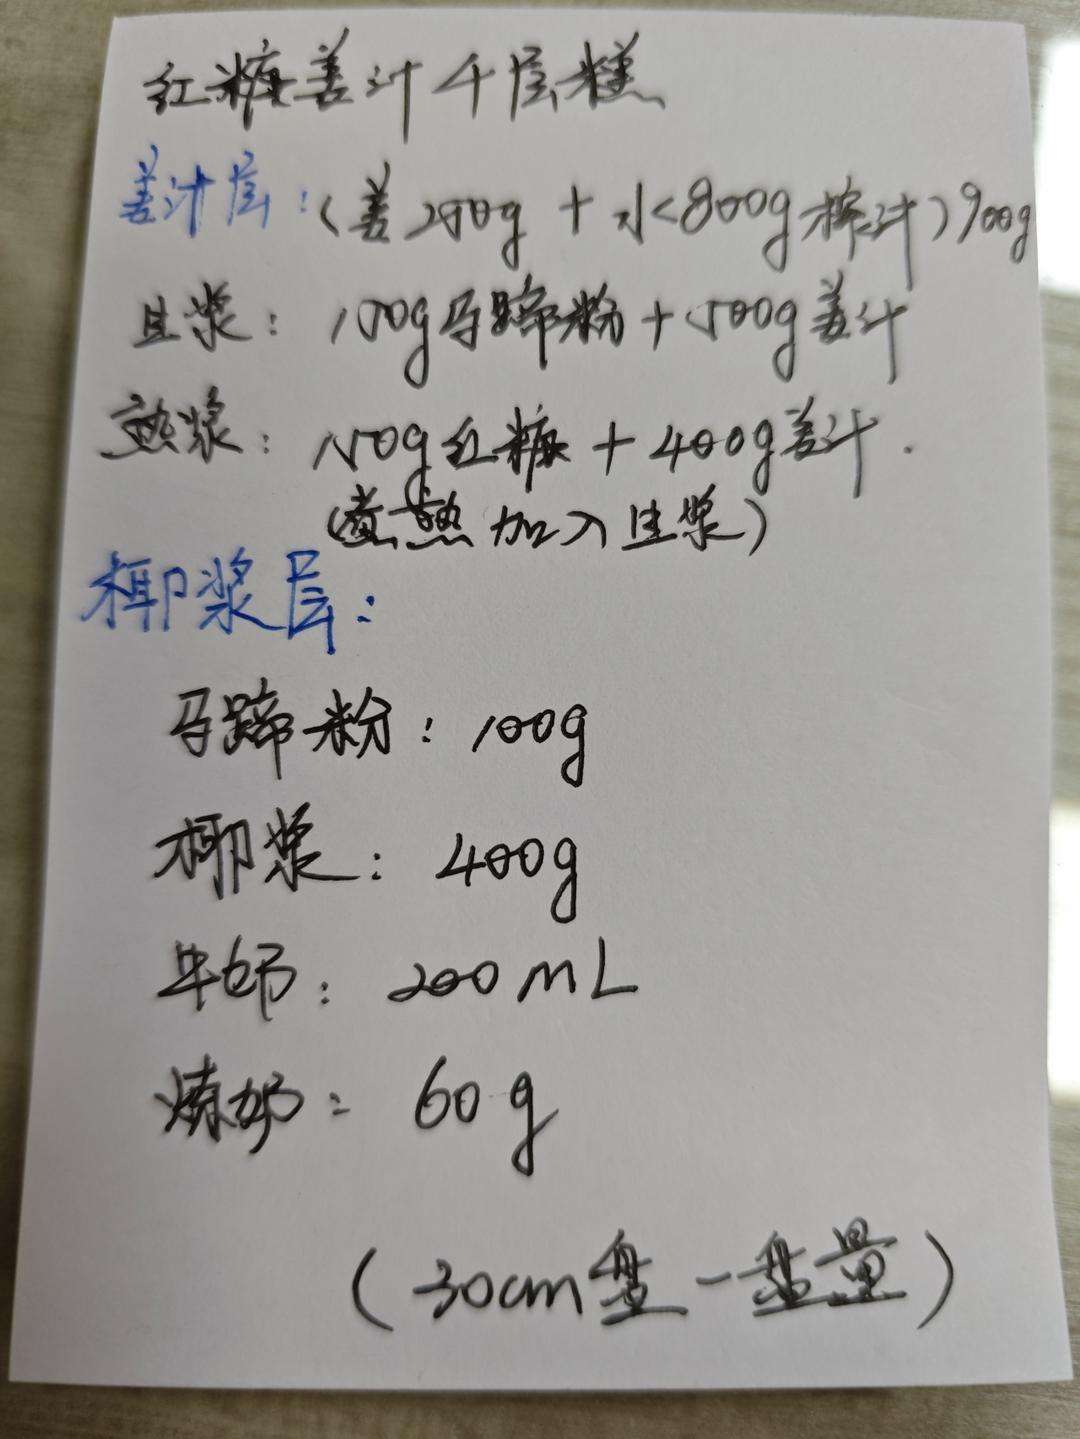 红糖姜汁千层糕
姜汁层:(姜200g + 水800g榨汁)900g
生浆: 150g马蹄粉+500g姜汁
熟浆: 150g红糖+400g姜汁.
(煮热加入生浆)
椰浆层:
马蹄粉: 100g
椰浆: 400g
牛奶: 200mL
炼奶: 60g
(30cm盘一盘量)